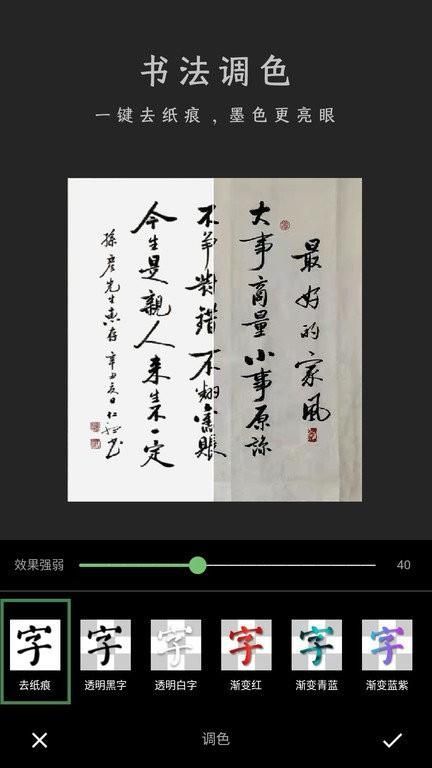 书法调色
一键去纸痕，墨色更亮眼
最好的家风
大事商量小事原谅
不争对错不翻旧账
今生是親人来生不一定
孫彦先生惠存辛丑夏日仁
效果强弱
40
字
字
字
字
字
字
去纸痕
透明黑字
透明白字
渐变红
渐变青蓝
渐变蓝紫
调色